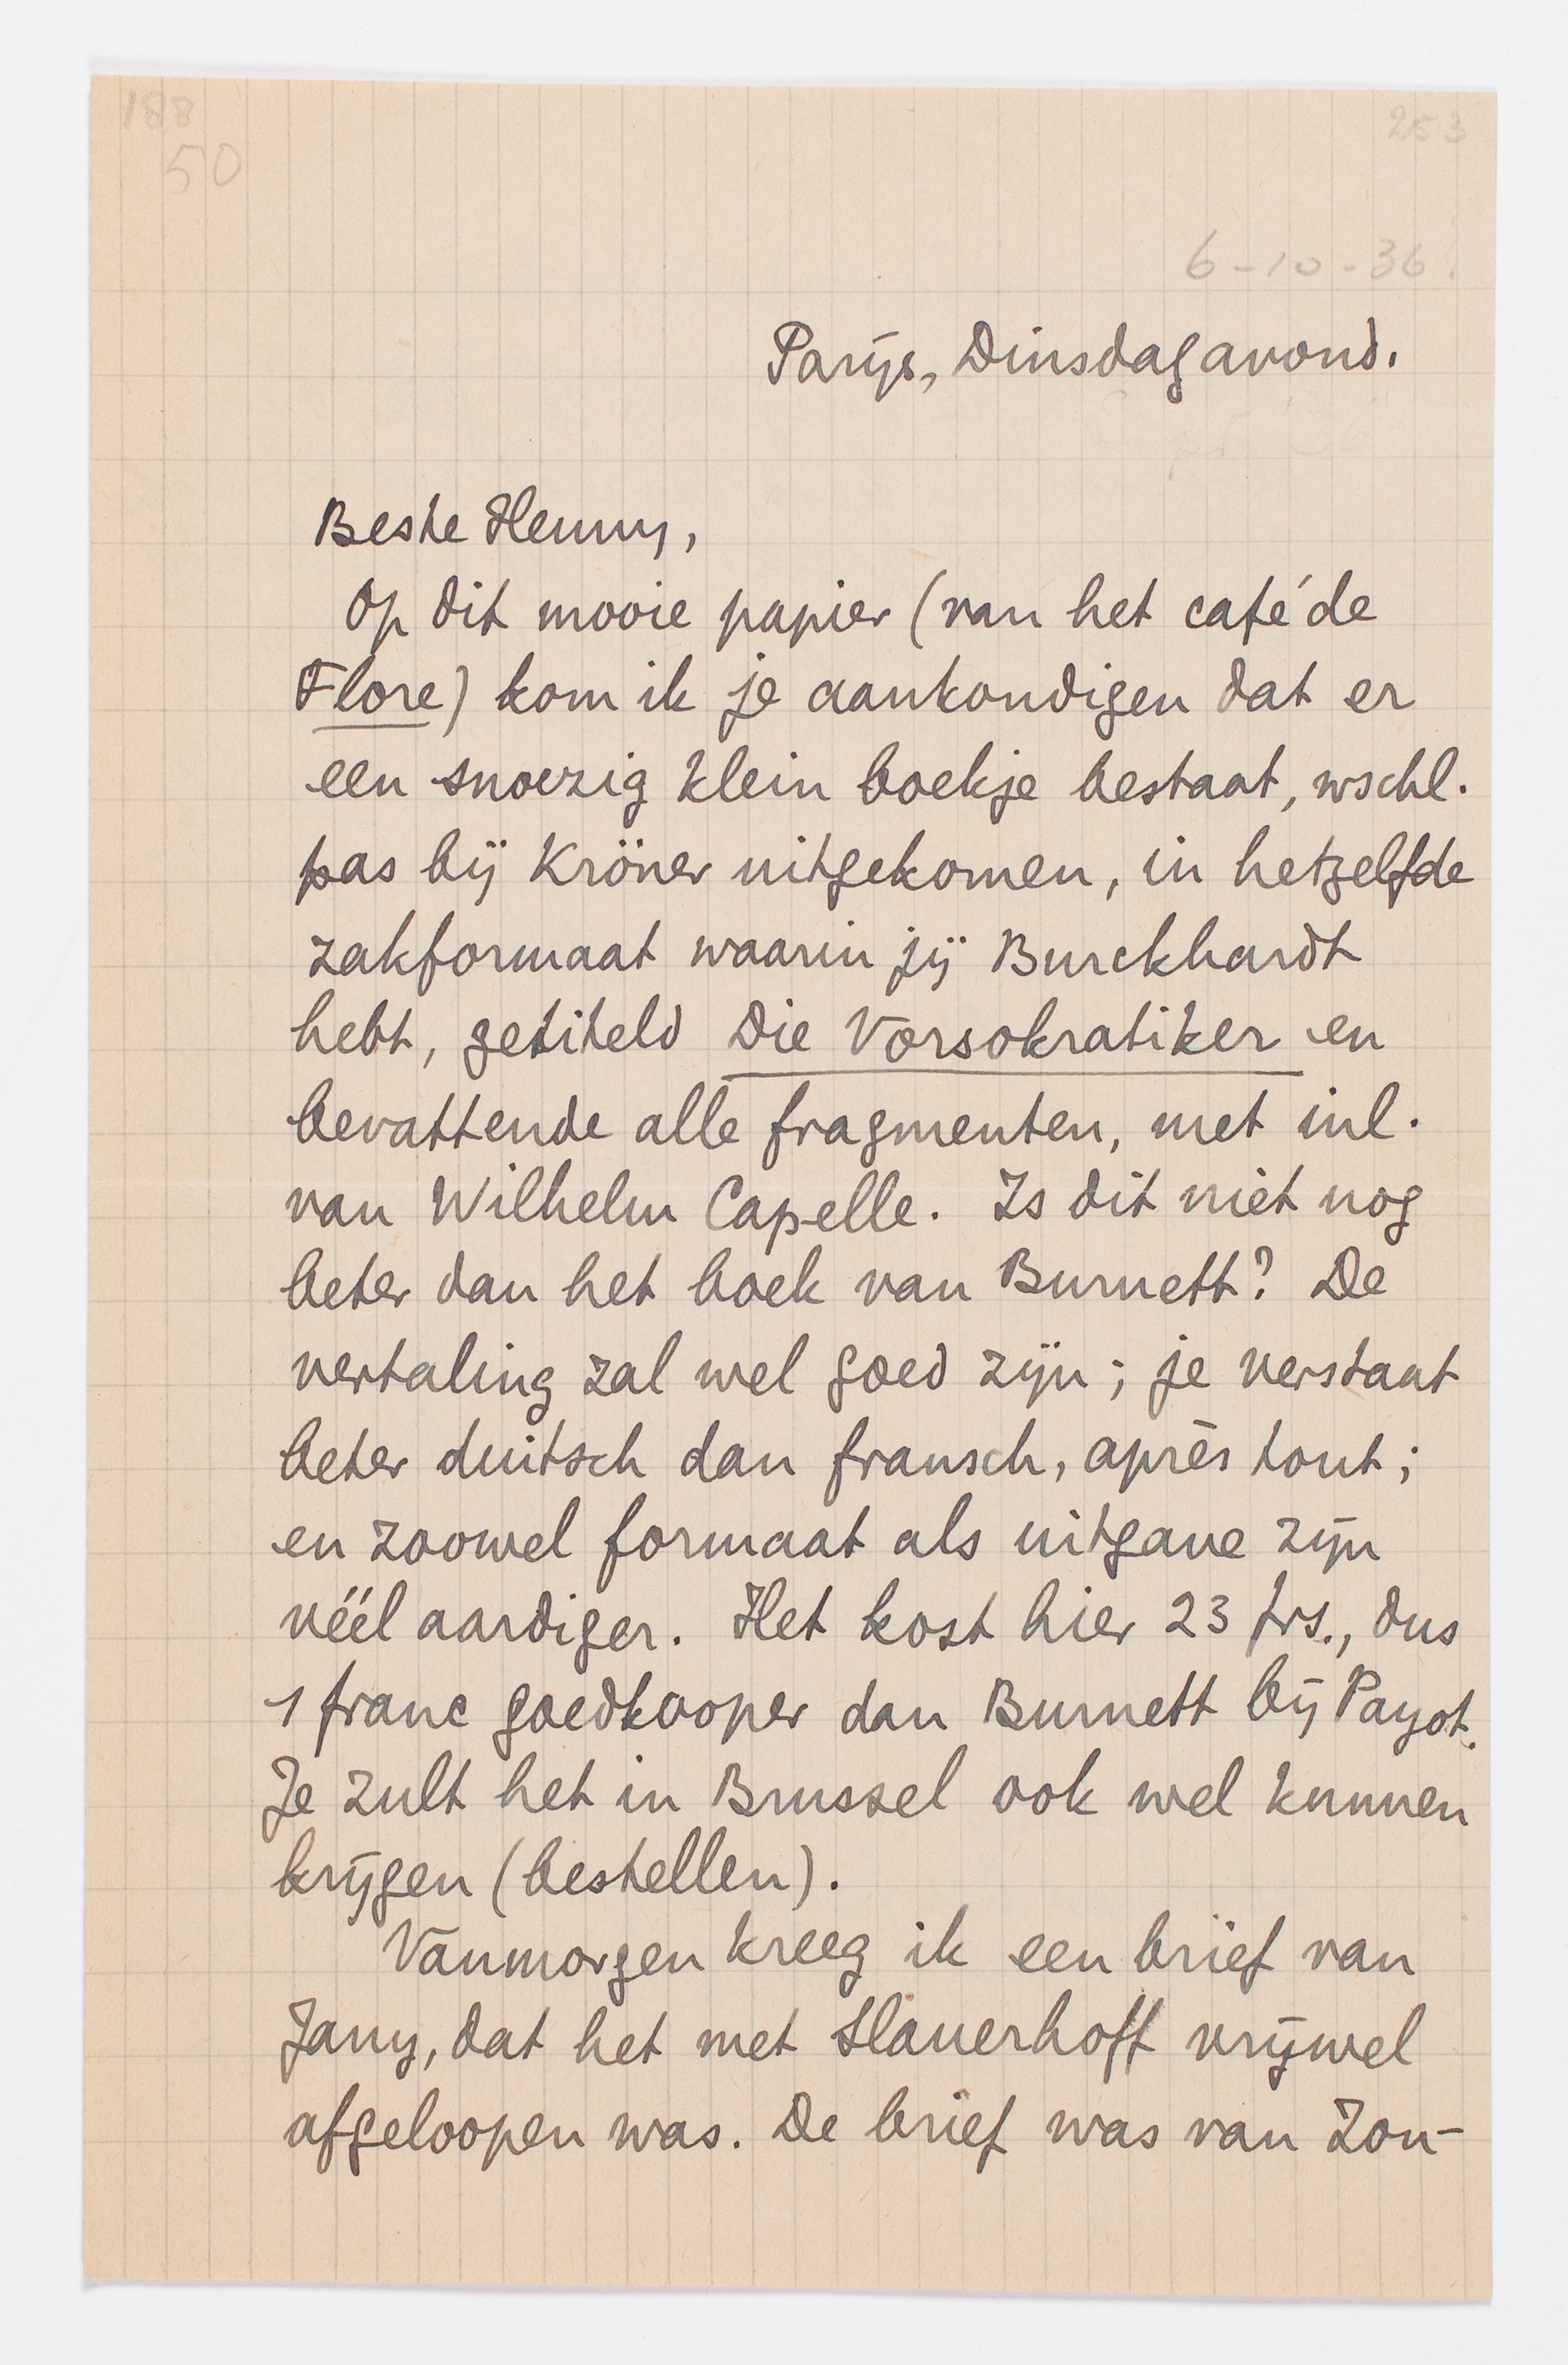 188
253
50
6-10-36.
Parijs, Dinsdagavond.
Beste Henny,
Op dit mooie papier (van het café de
Flore) kom ik je aankondigen dat er
een snoezig klein boekje bestaat, wschl.
pas bij Kröner uitgekomen, in hetzelfde
zakformaat waarin jij Burckhardt
hebt, getiteld Die Vorsokratiker en
bevattende alle fragmenten, met inl.
van Wilhelm Capelle. Is dit niet nog
beter dan het boek van Burnett? De
vertaling zal wel goed zijn; je verstaat
beter duitsch dan fransch, après tout;
en zoowel formaat als uitgave zijn
véél aardiger. Het kost hier 23 frs., dus
1 franc goedkooper dan Burnett bij Payot.
Je zult het in Brussel ook wel kunnen
krijgen (bestellen).
Vanmorgen kreeg ik een brief van
Jany, dat het met Slauerhoff vrijwel
afgeloopen was. De brief was van Zon-